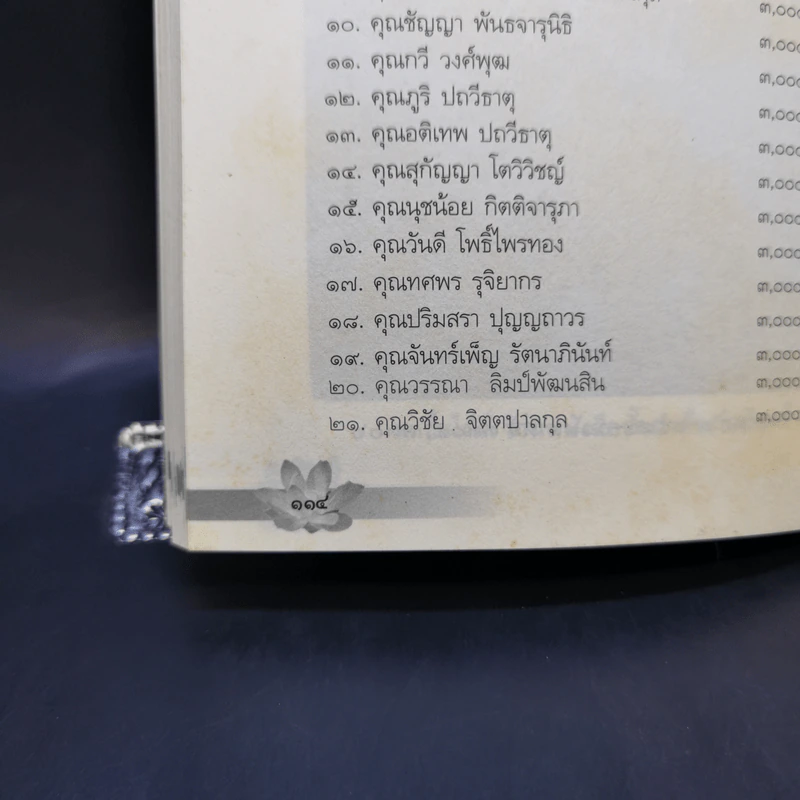 ๑๐. คุณชัญญา พันธจารุนิธิ ๓,๐๐๐
๑๑. คุณกวี วงศ์พุฒ ๓,๐๐๐
๑๒. คุณภูริ ปถวีธาตุ ๓,๐๐๐
๑๓. คุณอติเทพ ปถวีธาตุ ๓,๐๐๐
๑๔. คุณสุกัญญา โตวิวิชญ์ ๓,๐๐๐
๑๕. คุณนุชน้อย กิตติจารุภา ๓,๐๐๐
๑๖. คุณวันดี โพธิ์ไพรทอง ๓,๐๐๐
๑๗. คุณทศพร รุจิยากร ๓,๐๐๐
๑๘. คุณปริมสรา ปุญญถาวร ๓,๐๐๐
๑๙. คุณจันทร์เพ็ญ รัตนาภินันท์ ๓,๐๐๐
๒๐. คุณวรรณา ลิมป์พัฒนสิน ๓,๐๐๐
๒๑. คุณวิชัย จิตตปาลกุล ๓,๐๐๐
๑๑๔